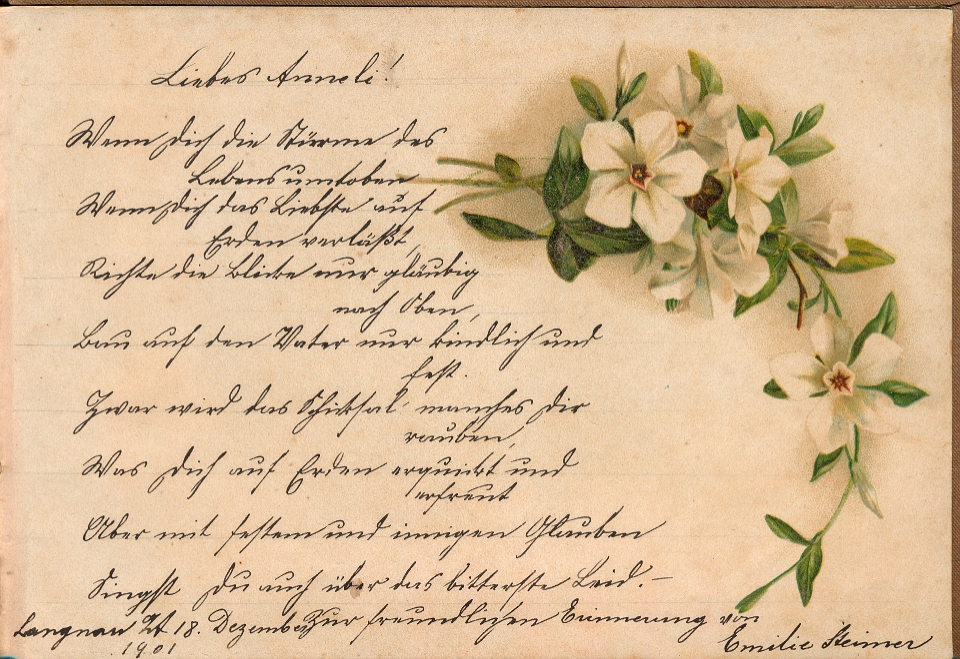 Liebes Anneli!
Wenn Dich die Stürme des
Lebens umtoben
Wenn Dich das Liebste auf
Erden verläßt,
Richte die Blicke nur gläubig
nach Oben,
Bau auf den Vater nur kindlich und
fest.
Zwar wird das Schicksal manches Dir
rauben,
Was Dich auf Erden erquickt und
erfreut
Aber mit festem und innigen Glauben
Singst Du auch über das bitterste Leid. –
Langnau 18. Dezember Zur freundlichen Erinnerung von
1901 Emilie Steiner